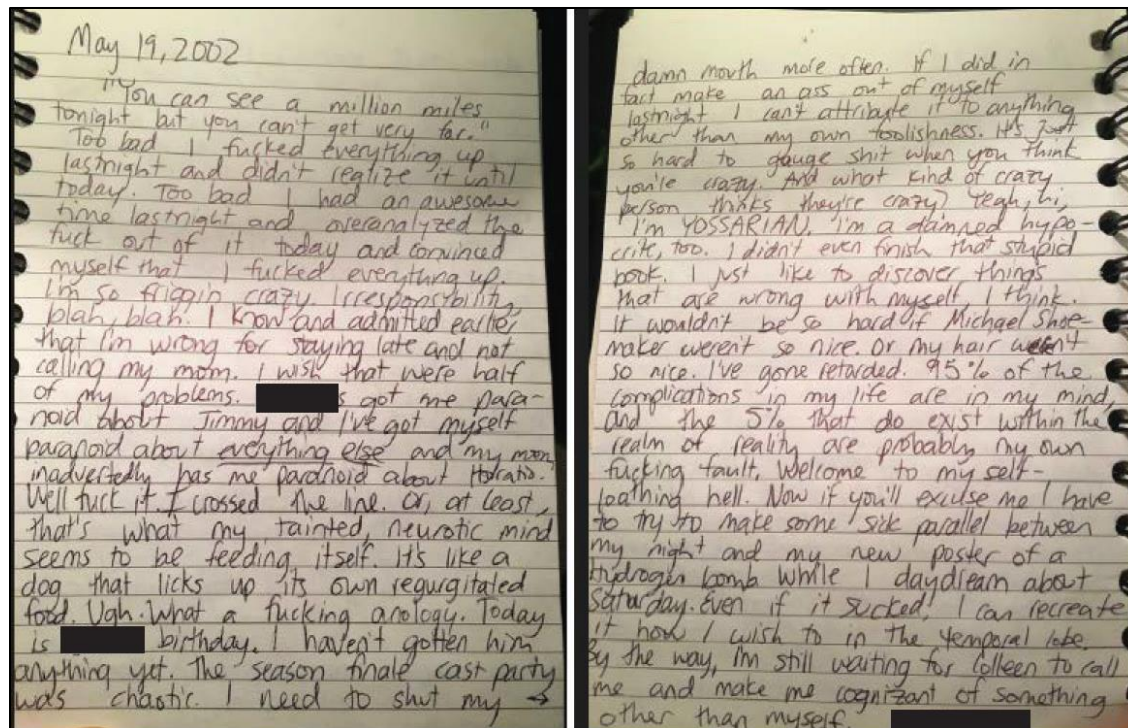 May 19, 2002
"You can see a million miles
tonight but you can't get very far."
Too bad I fucked everything up
lastnight and didn't realize it until
today. Too bad I had an awesome
time lastnight and overanalyzed the
fuck out of it today and convinced
myself that I fucked everything up.
I'm so friggin crazy. Irresponsibility,
blah, blah. I know and admitted earlier
that I'm wrong for staying late and not
calling my mom. I wish that were half
of my problems. s got me para-
noid about Jimmy and I've got myself
paranoid about everything else and my mom
inadvertedly has me paranoid about Horatio.
Well fuck it. I crossed the line. Or, at least,
that's what my tainted, neurotic mind
seems to be feeding itself. It's like a
dog that licks up its own regurgitated
food. Ugh. What a fucking anology. Today
is birthday. I haven't gotten him
anything yet. The season finale cast party
was chaotic. I need to shut my →
damn mouth more often. If I did in
fact make an ass out of myself
lastnight I can't attribute it to anything
other than my own foolishness. It's just
so hard to gauge shit when you think
you're crazy. And what kind of crazy
person thinks they're crazy? Yeah, hi,
I'm YOSSARIAN. I'm a damned hypo-
crite, too. I didn't even finish that stupid
book. I just like to discover things
that are wrong with myself, I think.
It wouldn't be so hard if Michael Shoe-
maker weren't so nice. Or my hair weren't
so nice. I've gone retarded. 95% of the
complications in my life are in my mind,
and the 5% that do exist within the
realm of reality are probably my own
fucking fault. Welcome to my self-
loathing hell. Now if you'll excuse me I have
to try to make some sick parallel between
my night and my new poster of a
hydrogen bomb while I daydream about
Saturday. Even if it sucked, I can recreate
it how I wish to in the temporal lobe.
By the way, I'm still waiting for Colleen to call
me and make me cognizant of something
other than myself.